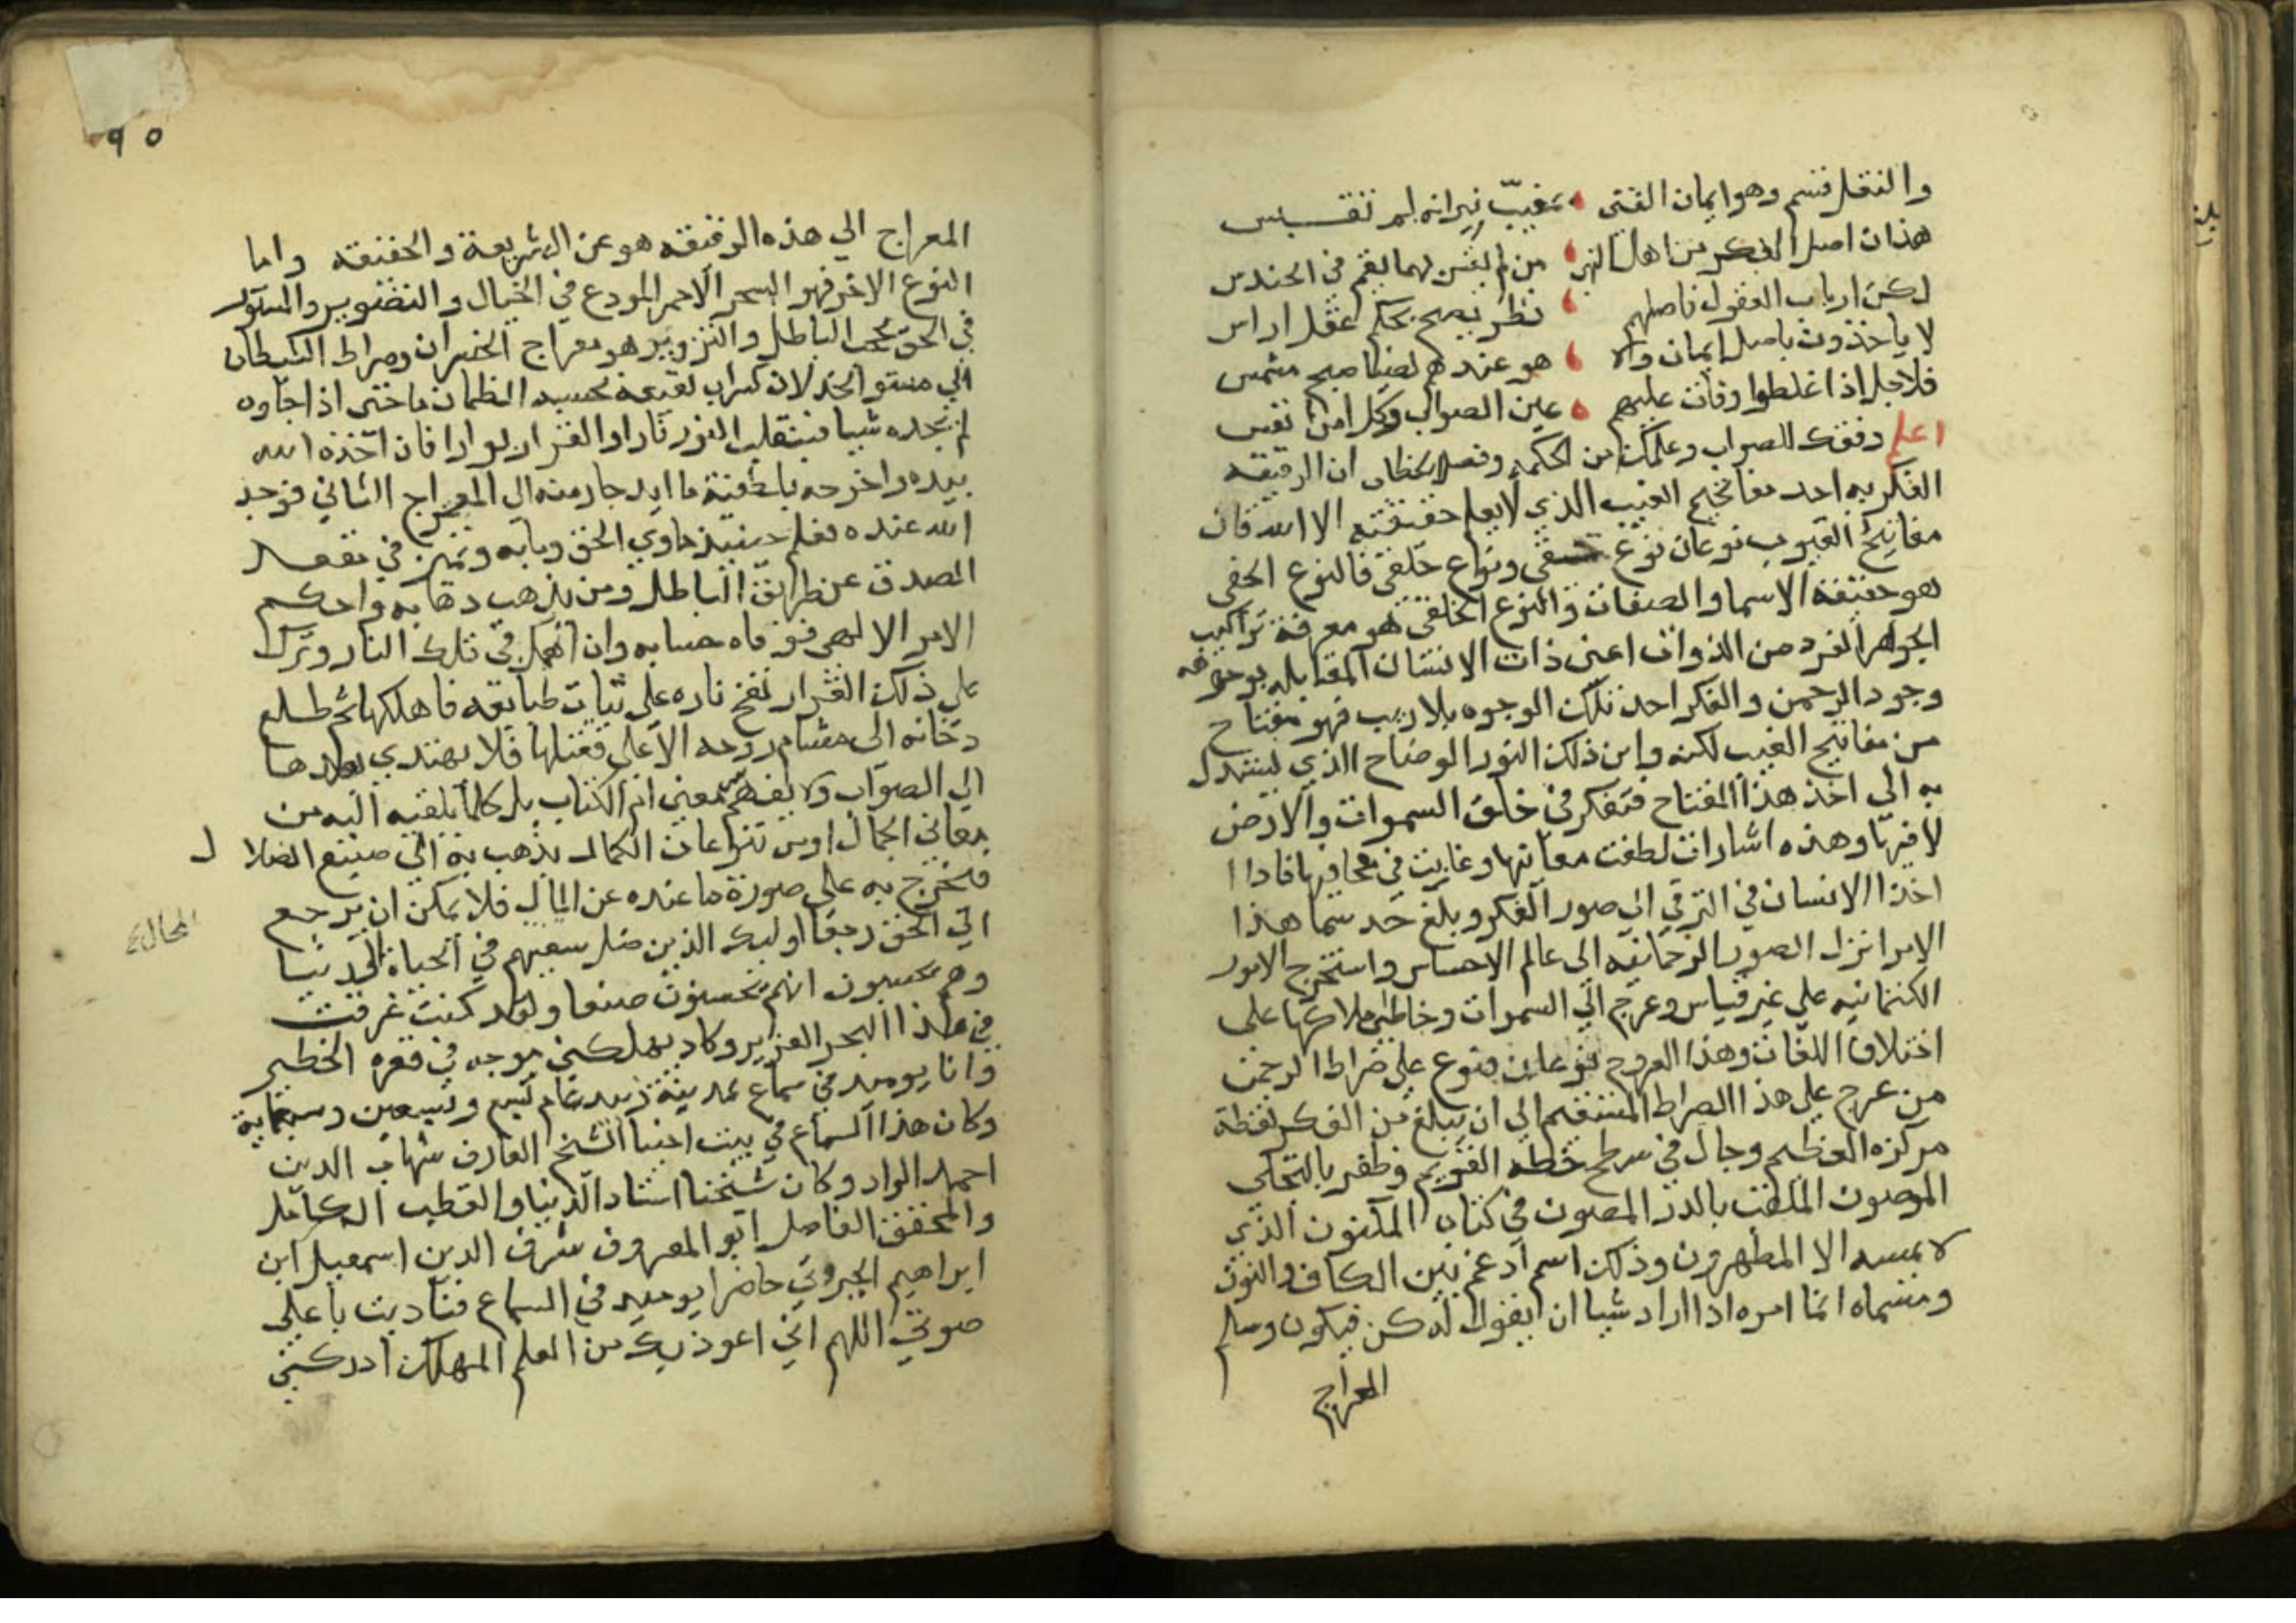 والنقل قسم وهو ايمان الفتى بمغيب نيرانه لم تقبس
هذان اصل الفكر من اهل النهى من لم يقس بهما يقم في الحندس
لكن ارباب العقول فاصلهم نظر يصح بحكم عقل اراس
لا ياخذون باصل ايمان ولا هو عندهم لضيا صبح مشمس
فلاجل اذا غلطوا وفات عليهم عين الصواب وكل امر
اعلم وفقك للصواب وعلمك من الحكمة وفصل الخطاب ان الرقيقه
الفكريه احد مفاتيح الغيب الذي لا يعلم حقيقته الا الله فان
مفاتيح الغيوب نوعان نوع حقي ونوع خلقي فالنوع الحقي
هو حقيقة الاسما والصفات والنوع الخلقي هو معرفة تراكيب
الجواهر الفرد من الذوات اعني ذات الانسان المقابله بوجوهه
وجود الرحمن والفكر احد تلك الوجوه بلا ريب فهو مفتاح
من مفاتيح الغيب لكنه واين ذلك النور الوضاح الذي ليستدل
به الى اخذ هذا المفتاح فتفكر في خلق السموات والارض
لا فيها وهذه اشارات لطفت معانيها وغابت في محافيها فاذا
اخذ الانسان في الترقي الى صور الفكر وبلغ حد سما هذا
الامر انزل الصور الرحمانيه الى عالم الاحساس واستخرج الامور
الكتمانيه على غير قياس وعرج الى السموات وخاطب ملاكها على
اختلاف اللغات وهذا العروج نوعان فنوع على صراط الرحمن
من عرج على هذا الصراط المستقيم الى ان يبلغ من الفكر نقطة
مركزه العظيم وجال في سطح خطه القويم وظفر بالتجلي
المصون الملقب بالدر المصون في كتاب المكنون الذي
لا يمسه الا المطهرون وذلك اسم ادغم بين الكاف والنون
ومسماه انما امره اذا اراد شيا ان يقول له كن فيكون وسلم
المعراج
٩٥
المعراج الى هذه الرقيقه هو عن الشريعة والحقيقه واما
النوع الاخر فهو السحر الاحمر المودع في الخيال والتصوير والمستور
في الحق بحجب الباطل والتزوير هو معراج الخسران وصراط الشيطان
الى مستو الخذلان كسراب بقيعة يحسبه الظمان ما حتى اذا جاوه
لم يجده شيا فينقلب النور نارا والقرار بوارا فان اخذه الله
بيده واخرجه بلطفية ما ايد جاز منه الى المعراج الثاني فوجد
الله عنده فعلم حينيذ ماوي الحق ومابه وتميز في مقعد
الصدق عن طريق الباطل ومن يذهب ذهابه واحكم
الامر الالهي فوفاه حسابه وان اهمل في تلك النار وترك
على ذلك القرار نفخ ناره على ثيات طبايعه فاهلكها ثم طلع
دخانه الى مشام روحه الاعلى فقتلها فلا يهتدي بعدها
الى الصواب ولا يفهم معني ام الكتاب بل كلما يلقيه اليه من
معاني الجمال او من تنوعات الكمال يذهب به الى صنيع الضلال
فيخرج به على صورة ما عنده عن المال فلا يمكن ان يرجع
المحال
الى الحق رجعا اوليك الذين ضل سعيهم في الحياة الدنيا
وهم يحسبون انهم يحسنون صنعا ولقد كنت غرقت
في هذا البحر الغزير وكاد يهلكني موجه في قعره الخطير
وانا يوميذ في سماع بمدينة زبيد عام تسع وتسعين وسبعماية
وكان هذا السماع في بيت اخينا الشيخ العارف شهاب الدين
احمد الرداد وكان شيخنا استاد الدنيا والقطب الكامل
والمحقق الفاضل ابو المعروف شرف الدين اسمعيل ابن
ابراهيم الجبروتي حاضرا يوميذ في السماع فناديت باعلى
صوتي اللهم اني اعوذ بك من العلم المهلك ادركني